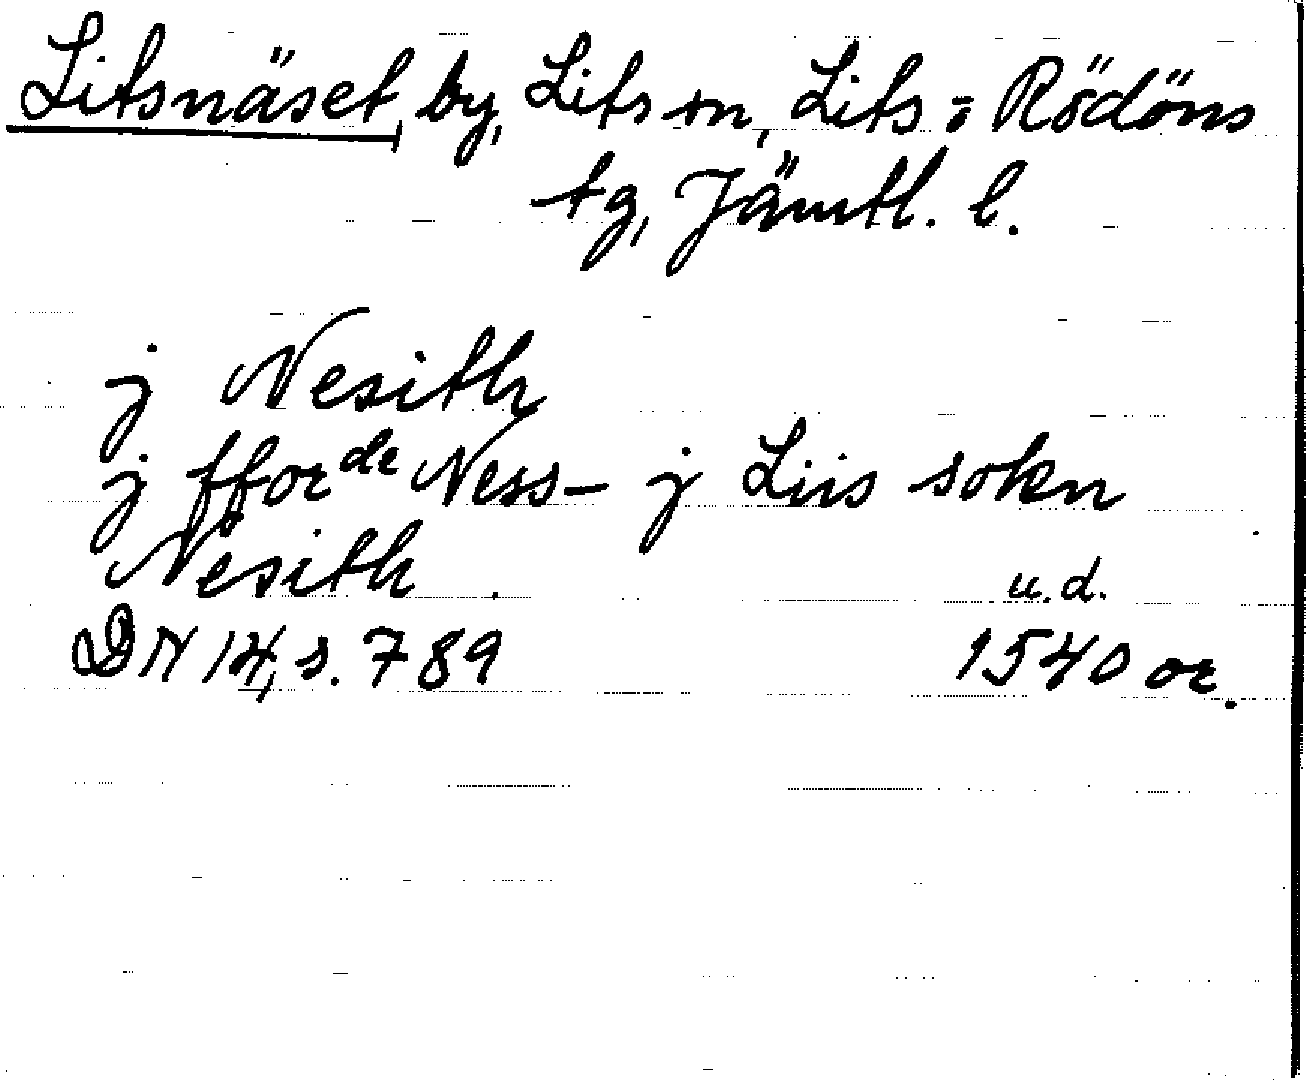 Litsnäset, by, Lits sn, Lits o Rödöns
tg, Jämtl. l.
j Nesith
j fforde Ness – j Liis sokn
Nesith . u.d.
DN 14, s. 789 1540 or.